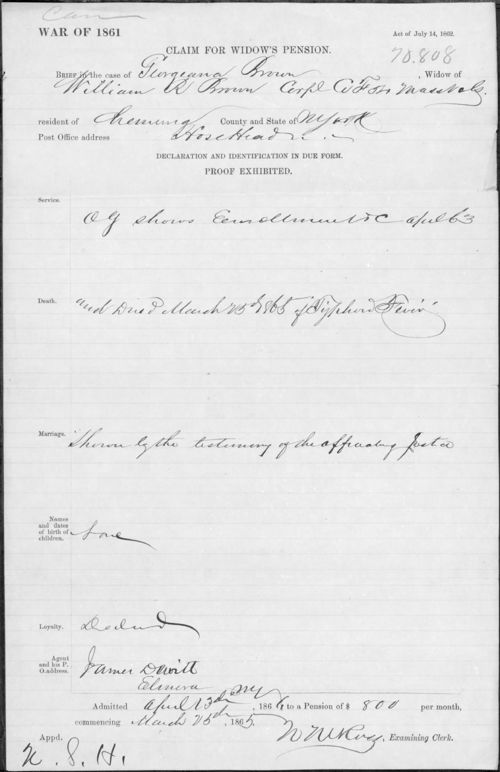 WAR OF 1861
Act of July 14, 1862.
CLAIM FOR WIDOW'S PENSION.
70.808
BRIEF in the case of Georgeana Brown, Widow of
William R Brown Corpl Co F 54 Mass Vols.
resident of Chemung County and State of N York
Post Office address Hose Heads
DECLARATION AND IDENTIFICATION IN DUE FORM.
PROOF EXHIBITED.
Service.
A G shows Enrollment &C April 63
Death.
and Died March 25th 1865 of Typhoid Fever
Marriage.
Shown by the testimony of the officiating Justice
Names
and dates
of birth of
children.
None
Loyalty.
Agent
and his P.
O. address.
James Davitt
Elmira NY
Admitted April 13th, 1866 to a Pension of $ 8 00 per month,
commencing March 25th, 1865,
Examining Clerk.
Appd.